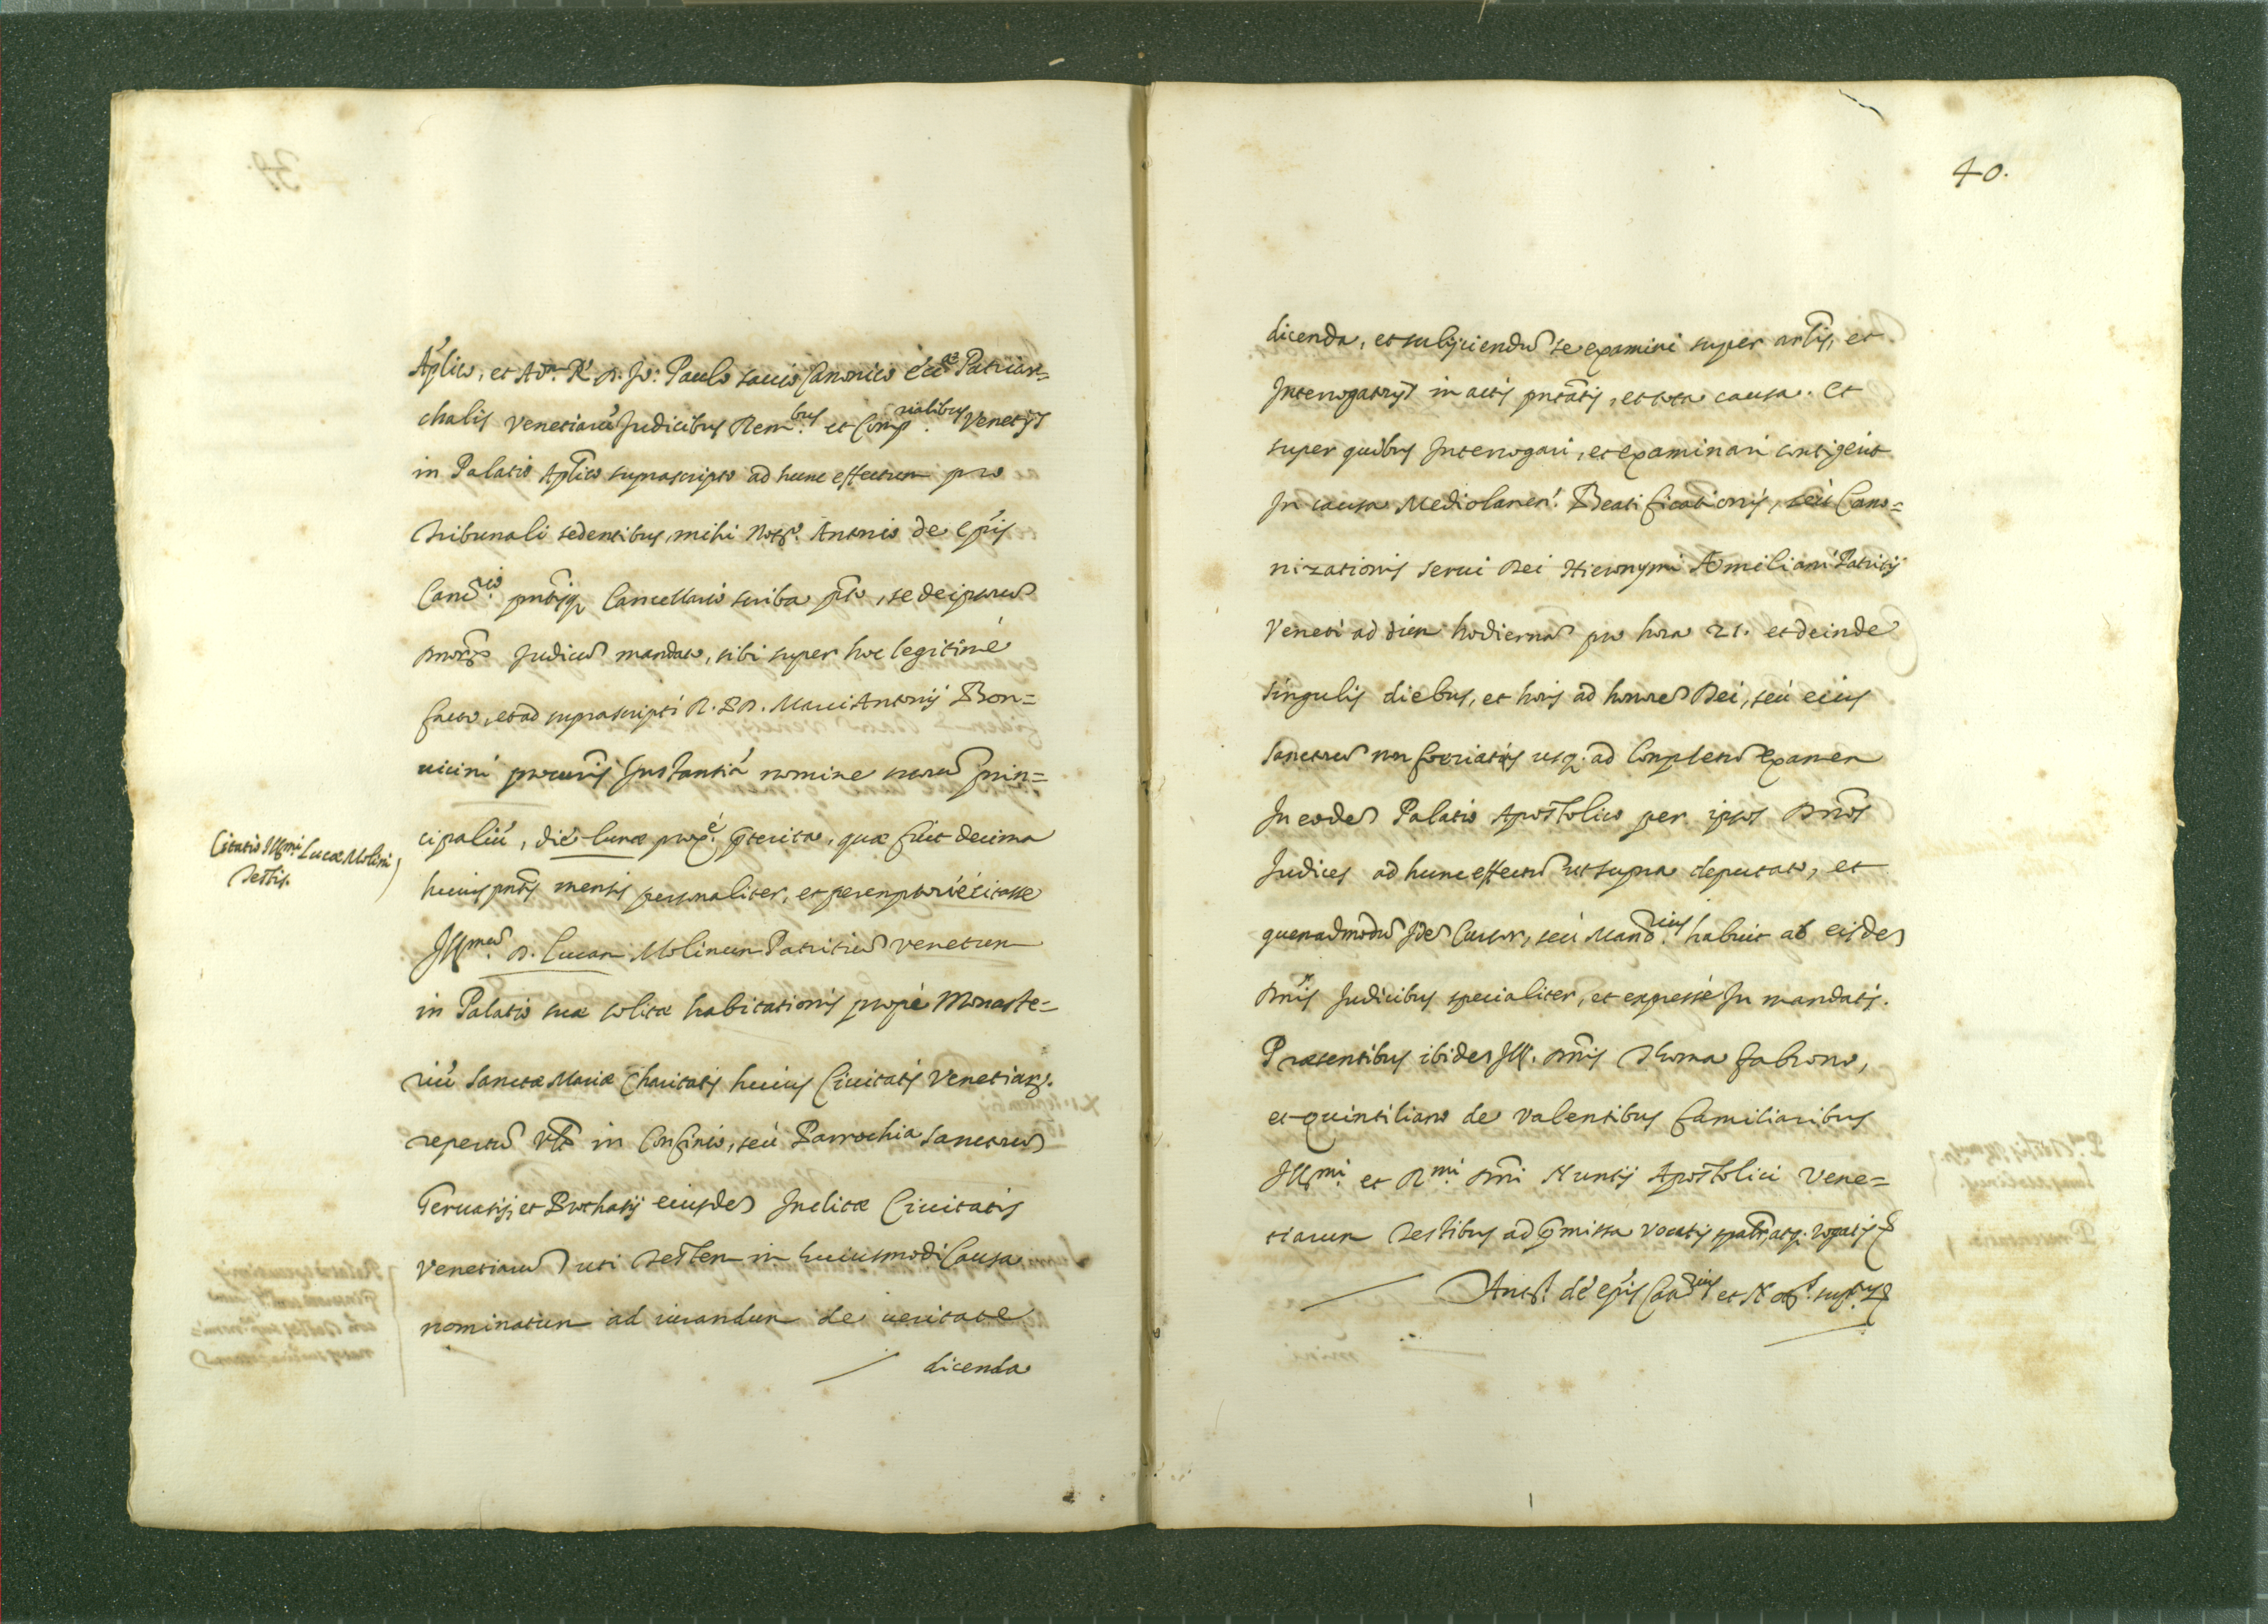 Ap'lico, et Adm. R. D. Jo: Paulo Savio Canonico Ecc.ae Patriar=
chalis Venetiarũ Judicibus Rem.bus et Comp.rialibus Venetijs
in Palatio Ap̃lico suprascripto ad hunc effectum pro
Tribunali sedentibus, mihi Not.o Antonio de Ep̃is
Canc.rio pñtisq; Cancellario scriba pto, se de ipsorũ
Dnorũ Judicũ mandato, sibi super hoc legitimè
facto, et ad suprascripti R. D. D. Marci Antonij Bon=
uicini procuris Instantiã nomine suorũ prin=
cipaliũ, die lunæ prox.è p̃terita, quæ fuit decima
huius pñtis mensis personaliter, et peremptoriè citasse
Ill.mũ D. Lucam Molinum Patritiũ Venetum
in Palatio suæ solitæ habitationis propè Monaste=
riũ Sanctæ Mariæ Charitatis huius Ciuitatis Venetiarũ.
repertũ in Confinio, seù Parrochia Sanctorũ
Geruasij, et Prothasij eiusdẽ Inclitæ Ciuitatis
Venetiarũ uti Testem in huiusmodi Causa
nominatum ad iurandum de ueritate
dicenda
Citatio Ill.mi Lucæ Molini
Testis.
40.
dicenda, et subijciendũ se examini super artlis, et
Interrogatorijs in actis pntatis, et tota causa. Et
super quibus Interrogari, et examinari contigerit
In causa Mediolanen. Beatificationis, seù Cano=
nizationis Serui Dei Hieronymi Æmiliani Patritij
Veneti ad diem hodiernã pro hora 21. et deinde
singulis diebus, et horis ad honorẽ Dei, seù eius
Sanctorũ non feriatis usq; ad Completũ Examen
In eodẽ Palatio Apostolico per ipsos Dños
Judices ad hunc effectũ ut supra deputato, et
quemadmodũ Idẽ Cursor, seù Mand.rius habuit ab eisdẽ
Dñis Judicibus specialiter, et expressè In mandatis.
Præsentibus ibidẽ Ill. Dñis Thoma Fabrono,
et Quintiliano de Valentibus familiaribus
Ill.mi et R.mi Dñi Nuntij Apostolici Vene=
tiarum Testibus ad p̃missa vocatis spãlr, atq; rogatis
Ant.s de Ep̃is Can.rius et Not.s